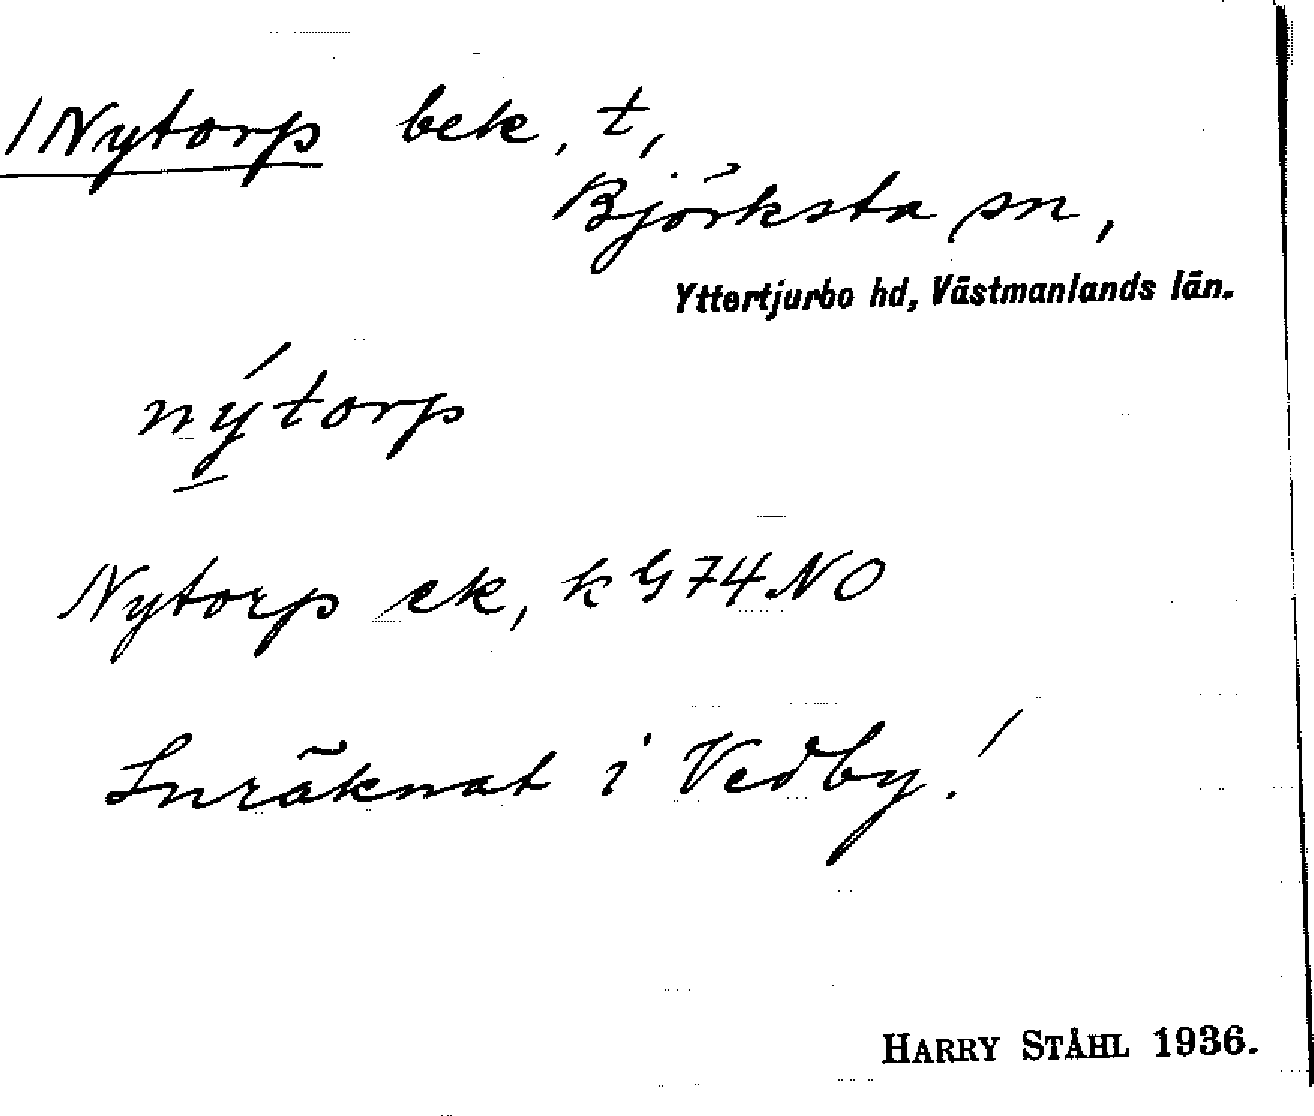 /Nytorp bek, t,
Björksta sn,
Yttertjurbo hd, Västmanlands län.
nýtorp
Nytorp ek, k G 74 NO
Inräknat i Vedby!
HARRY STÅHL 1936.